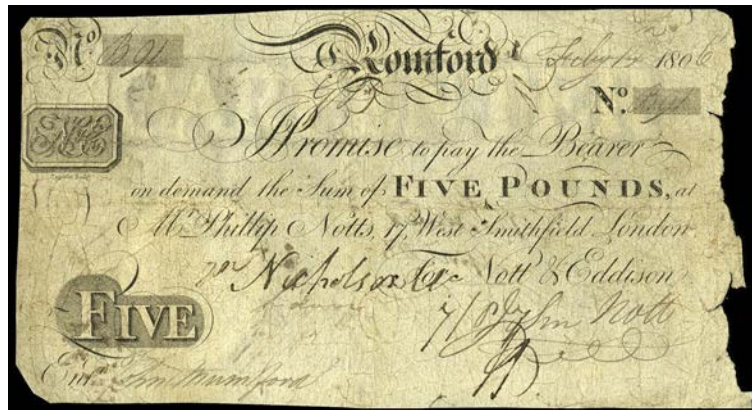 No B 91 Romford July 12 1806
No B 91
N&E
I Promise to pay the Bearer
on demand the Sum of FIVE POUNDS, at
Mr. Phillip Notts, 17, West Smithfield London
Nicholson For Nott & Eddison
FIVE John Nott
Entd. John Mumford